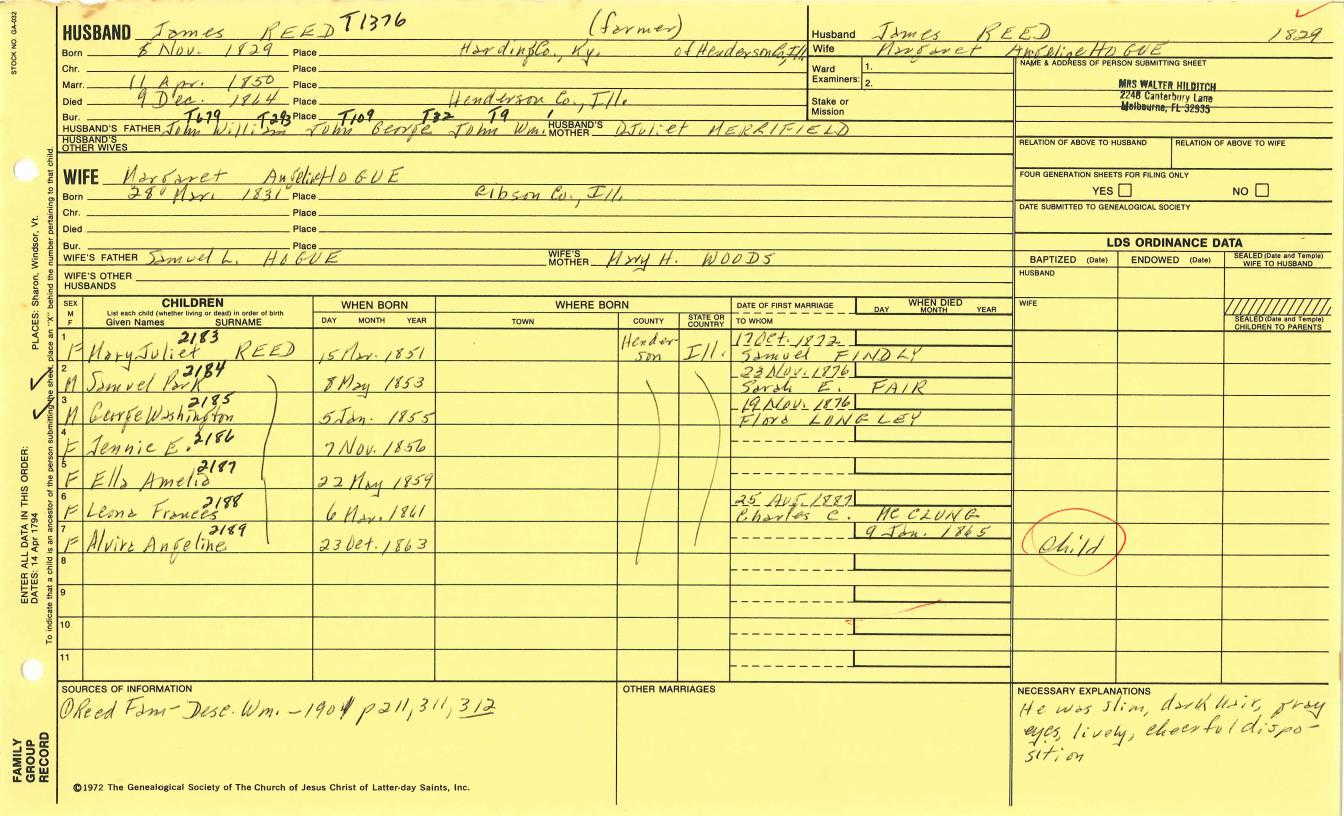 STOCK NO. GA-032
HUSBAND James REED T1376 (farmer)
Born 8 Nov. 1829 Place Hardin Co, Ky. of Henderson Co, Ill.
Chr. Place
Marr. 11 Apr. 1850 Place
Died 9 Dec. 1864 Place Henderson Co., Ill.
Bur. Place
T679 T293 T109 T32 T9 1
HUSBAND'S FATHER John William John George John Wm. HUSBAND'S MOTHER Juliet MERRIFIELD
HUSBAND'S OTHER WIVES
Husband James REED 1829
Wife Margaret Angeline HOGUE
Ward Examiners: 1.
2.
Stake or Mission
NAME & ADDRESS OF PERSON SUBMITTING SHEET
MRS WALTER HILDITCH
2248 Canterbury Lane
Melbourne, FL 32935
RELATION OF ABOVE TO HUSBAND RELATION OF ABOVE TO WIFE
FOUR GENERATION SHEETS FOR FILING ONLY
YES NO
DATE SUBMITTED TO GENEALOGICAL SOCIETY
WIFE Margaret Angeline HOGUE
Born 28 Mar. 1831 Place Gibson Co., Ill.
Chr. Place
Died Place
Bur. Place
WIFE'S FATHER Samuel L. HOGUE WIFE'S MOTHER Mary H. WOODS
WIFE'S OTHER HUSBANDS
LDS ORDINANCE DATA
BAPTIZED (Date) ENDOWED (Date) SEALED (Date and Temple) WIFE TO HUSBAND
HUSBAND
WIFE
SEALED (Date and Temple) CHILDREN TO PARENTS
SEX M F CHILDREN WHEN BORN WHERE BORN DATE OF FIRST MARRIAGE WHEN DIED
List each child (whether living or dead) in order of birth
Given Names SURNAME DAY MONTH YEAR TOWN COUNTY STATE OR COUNTRY TO WHOM DAY MONTH YEAR
1 F Mary Juliet REED 2183 15 Mar. 1851 Henderson Ill. 17 Oct. 1872 Samuel FINDLY
2 M Samuel Park 2184 8 May 1853 23 Nov. 1876 Sarah E. FAIR
3 M George Washington 2185 5 Jan. 1855 19 Nov. 1876 Flora LONGLEY
4 F Jennie E. 2186 7 Nov. 1856
5 F Ella Amelia 2187 22 May 1859
6 F Leona Frances 2188 6 Mar. 1861 25 Aug. 1887 Charles C. McCLUNG
7 F Alvira Angeline 2189 23 Oct. 1863 9 Jan. 1865 Child
8
9
10
11
SOURCES OF INFORMATION
① Reed Fam - Desc. Wm. - 1901 p 211, 311, 312
OTHER MARRIAGES
NECESSARY EXPLANATIONS
He was slim, dark hair, gray
eyes, lively, cheerful dispo-
sition
©1972 The Genealogical Society of The Church of Jesus Christ of Latter-day Saints, Inc.
FAMILY GROUP RECORD
ENTER ALL DATA IN THIS ORDER:
DATES: 14 Apr 1794 PLACES: Sharon, Windsor, Vt.
To indicate that a child is an ancestor of the person submitting the sheet, place an "X" behind the number pertaining to that child.